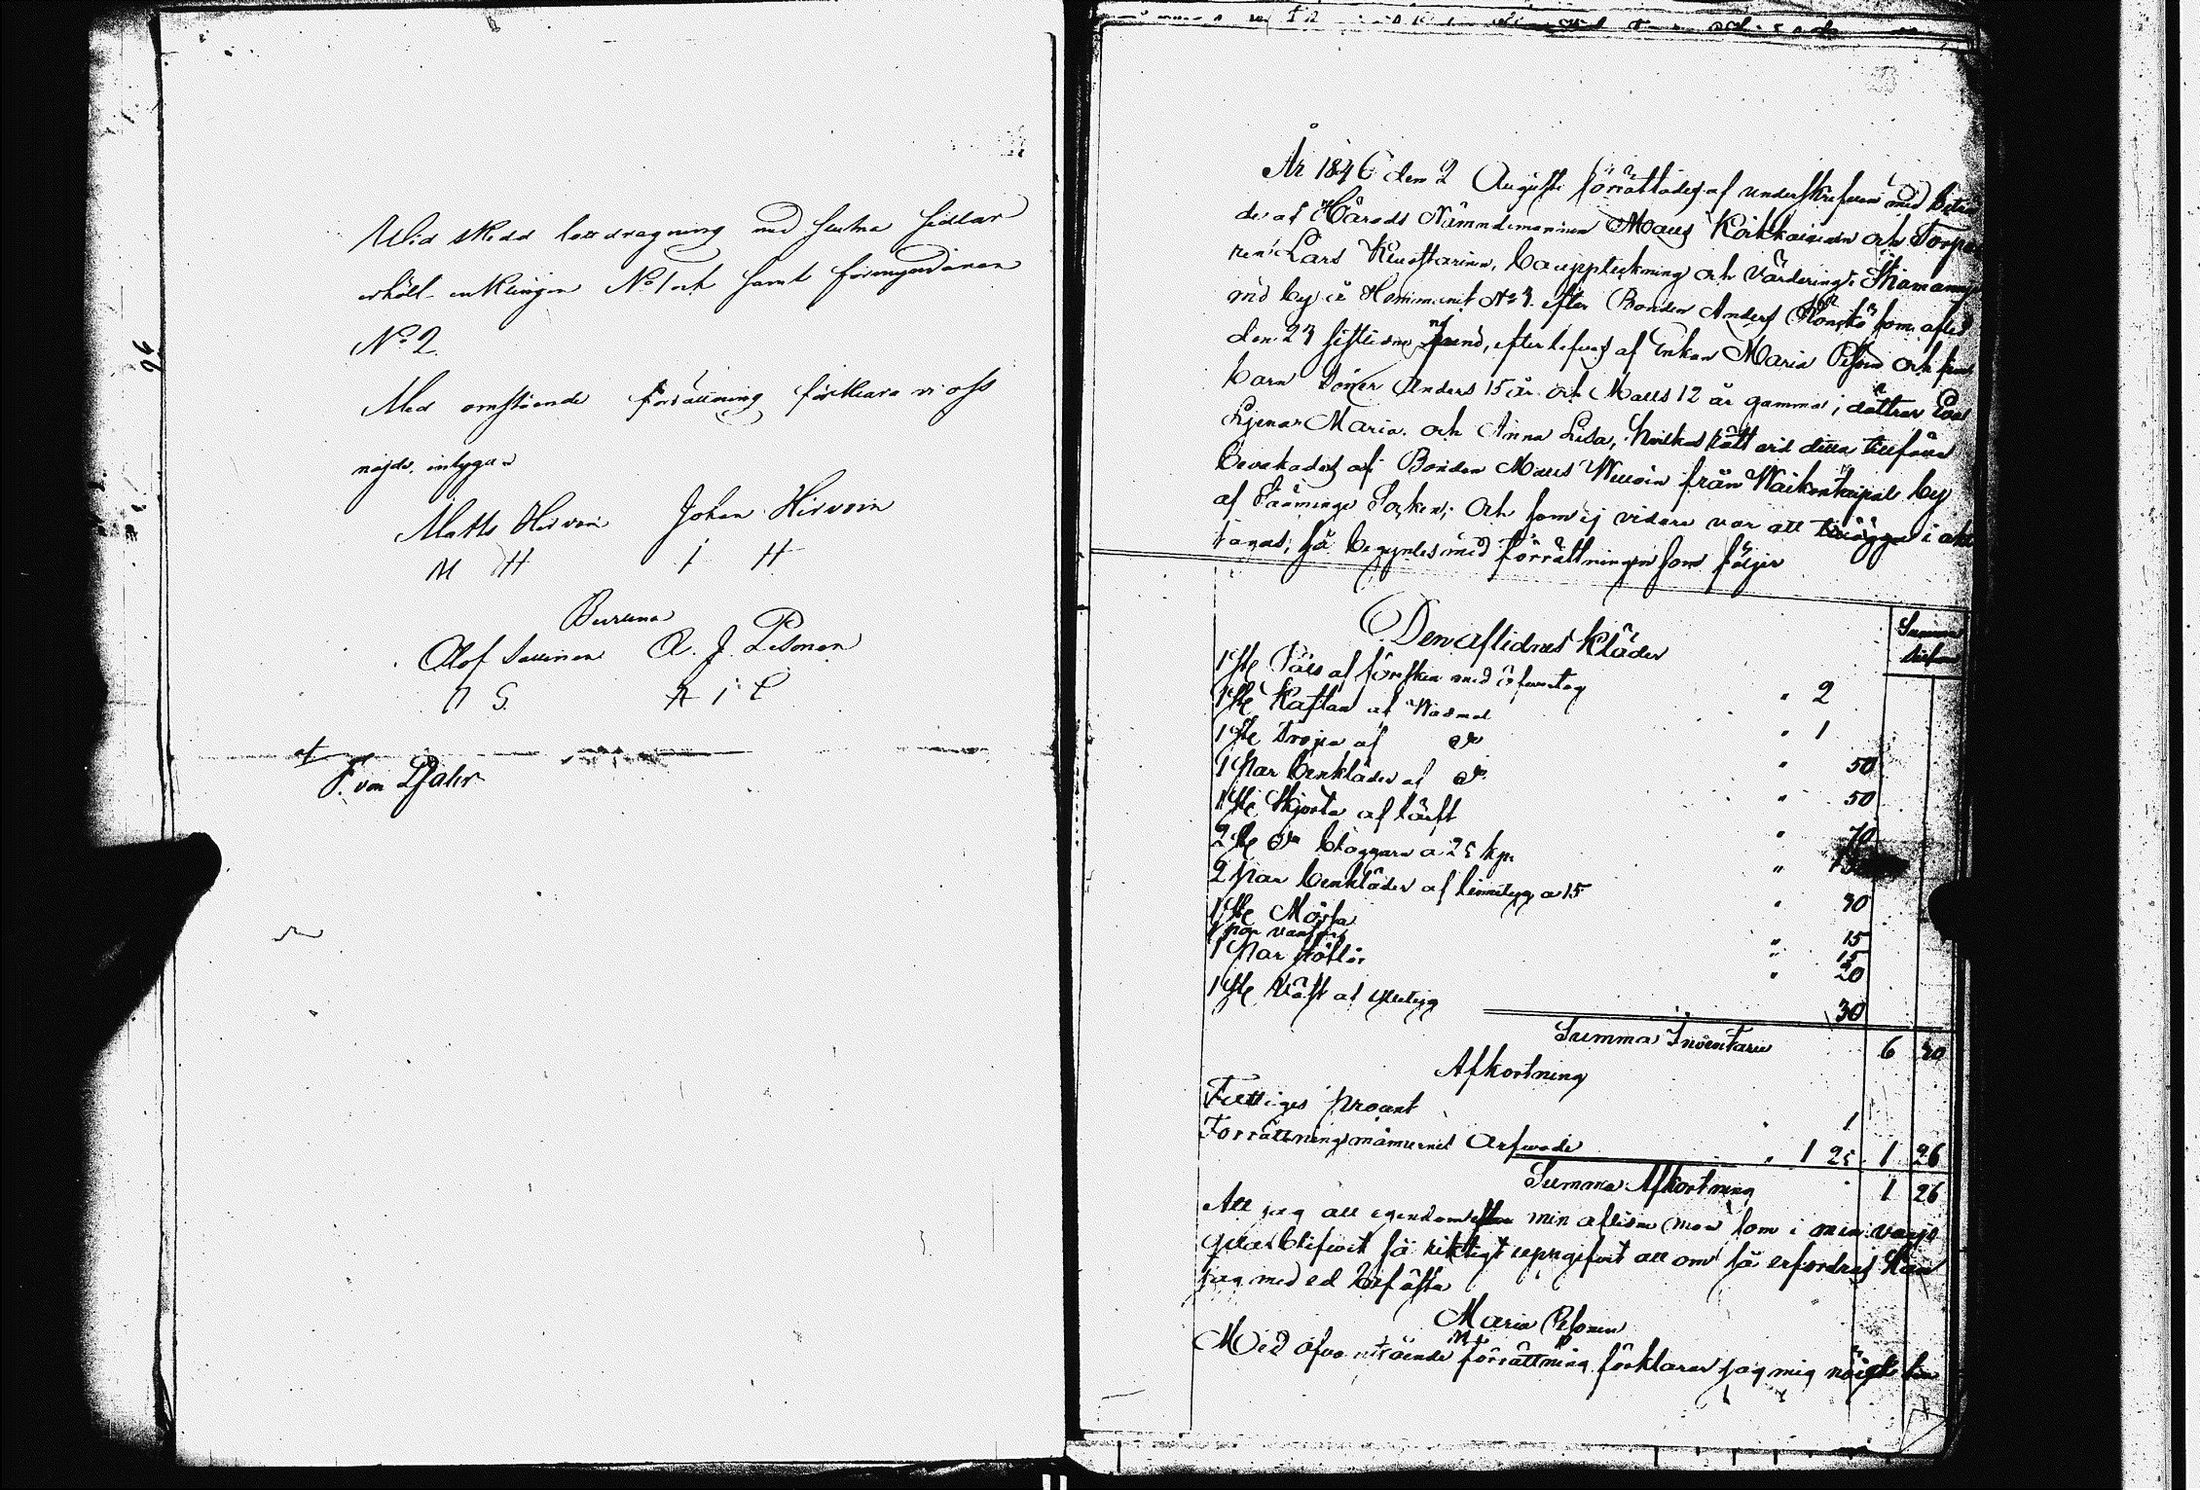 96
Wid skedd lottdragning med hustru sidlar
erhöll enklingen No 1 och samt förmyndaren
No 2.
Med omstående förrättning förklara vi oss
nöjde, intygar
Matts Hirvoin Johan Hirvoin
M H I H
Bevittna
Olof Sallinen A. J. Pesonen
O S A I P
F. von Pfaler
År 1846 den 2 Augusti förrättades af underskrifven med biträ
de af Härads Nämndemannen Mats Koikkalainen och Torpa
ren Lars Kuosmarinen, bouppteckning och värdering i
by å Hemmanet No 4 efter Bonden Anders som afled
den 24 sistledne, efterlefves af Enkan Maria Pesoin och fem
barn Söner Anders 15 år och Matts 12 år gammal; döttrar Eva
Maria och Anna Lisa, hvilkas rätt vid detta tillfälle
bevakades af Bonden Mats från by
af Säminge Socken; Och som ej vidare var att i akt
tagas, så begyntes med förrättningen som följer
Den aflidnes Kläder
Summa
Silfver
1 St Päls af fårskin med öfvertyg " 2
1 St Kaftan af Wadmal " 1
1 St Tröja af do " 50
1 Par benkläder af do " 50
1 St Skjorta af lärft " 70
2 St do blaggarn a 25 kp "
2 Par benkläder af linnetyg a 15 " 30
1 St Mössa " 15
1 par vantar " 15
1 Par stöflor " 20
1 St Väst af ylletyg 30
Summa Inventarii 6 40
Afkortning
Fattiges procent " 1
Förrättningsmännernes Arfwode " 1 25 1 26
Summa Afkortning 1 26
Att jag all egendom efter min aflidne man som i min vårjo
qvarblifwit så riktigt uppgifvit att om så erfordras kan
jag med ed bekräfta
Maria Pesonen
Med ofvanstående förrättning förklarar jag mig nöjd